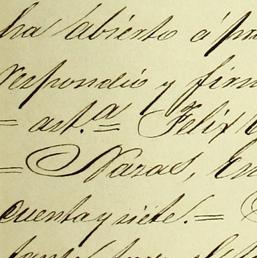 ha abierto á pr
respondió y firm
= ast.ª = Felix
= Naras, En
cuenta y siete. =